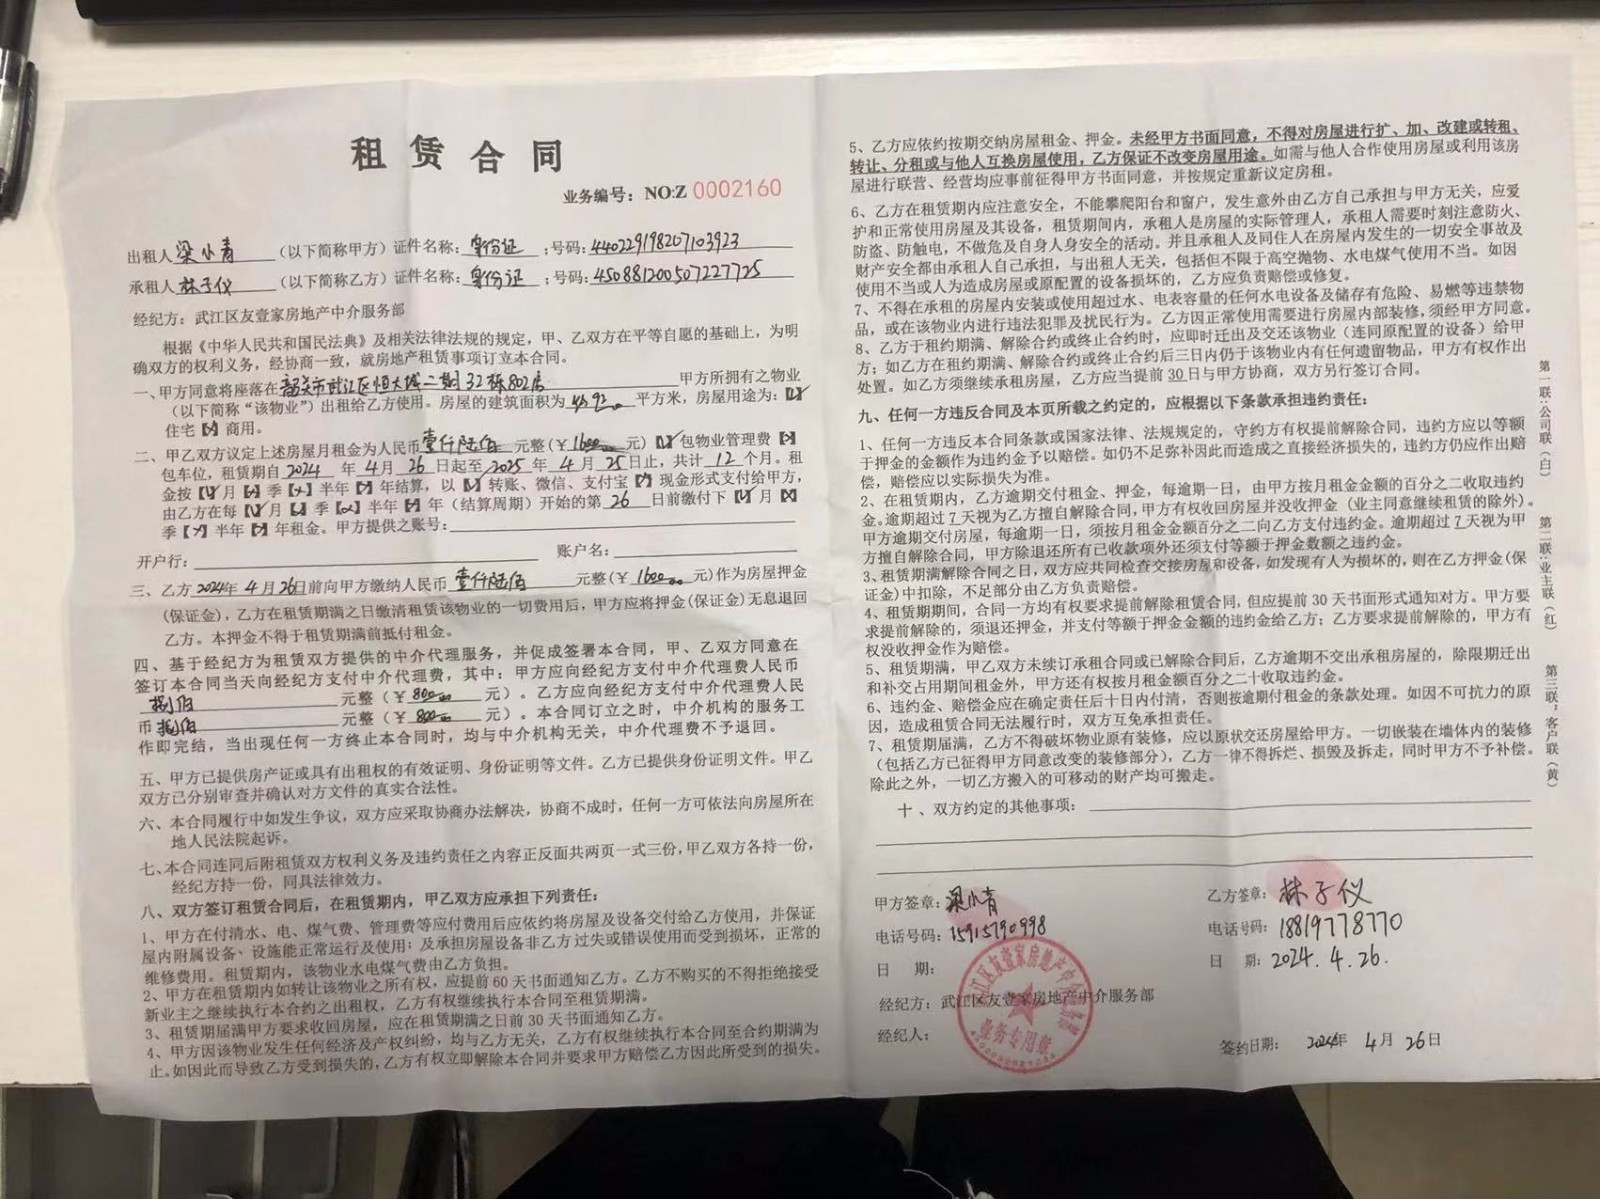 租赁合同
业务编号：NO:Z 0002160
出租人 梁小青 （以下简称甲方）证件名称：身份证 ；号码：440229198207103923
承租人 林子仪 （以下简称乙方）证件名称：身份证 ；号码：450881200507227725
经纪方：武江区友壹家房地产中介服务部
根据《中华人民共和国民法典》及相关法律法规的规定，甲、乙双方在平等自愿的基础上，为明
确双方的权利义务，经协商一致，就房地产租赁事项订立本合同。
一、甲方同意将座落在 韶关市武江区恒大城二期32栋802房 甲方所拥有之物业
（以下简称“该物业”）出租给乙方使用。房屋的建筑面积为 平方米，房屋用途为：【√】
住宅【×】商用。
二、甲乙双方议定上述房屋月租金为人民币 壹仟陆佰 元整（￥1600 元）【√】包物业管理费【×】
包车位，租赁期自 2024 年 4 月 26 日起至 2025 年 4 月 25 日止，共计 12 个月。租
金按【√】月【×】季【×】半年【×】年结算，以【√】转账、微信、支付宝【】现金形式支付给甲方，
由乙方在每【√】月【×】季【×】半年【×】年（结算周期）开始的第 26 日前缴付下【√】月【×】
季【×】半年【×】年租金。甲方提供之账号：
开户行： 账户名：
三、乙方 2024年 4 月 26日前向甲方缴纳人民币 壹仟陆佰 元整（￥ 1600 元）作为房屋押金
(保证金)，乙方在租赁期满之日缴清租赁该物业的一切费用后，甲方应将押金(保证金)无息退回
乙方。本押金不得于租赁期满前抵付租金。
四、基于经纪方为租赁双方提供的中介代理服务，并促成签署本合同，甲、乙双方同意在
签订本合同当天向经纪方支付中介代理费，其中：甲方应向经纪方支付中介代理费人民币
捌佰 元整（￥ 800.00 元）。乙方应向经纪方支付中介代理费人民
币 捌佰 元整（￥ 800.00 元）。本合同订立之时，中介机构的服务工
作即完结，当出现任何一方终止本合同时，均与中介机构无关，中介代理费不予退回。
五、甲方已提供房产证或具有出租权的有效证明、身份证明等文件。乙方已提供身份证明文件。甲乙
双方已分别审查并确认对方文件的真实合法性。
六、本合同履行中如发生争议，双方应采取协商办法解决，协商不成时，任何一方可依法向房屋所在
地人民法院起诉。
七、本合同连同后附租赁双方权利义务及违约责任之内容正反面共两页一式三份，甲乙双方各持一份，
经纪方持一份，同具法律效力。
八、双方签订租赁合同后，在租赁期内，甲乙双方应承担下列责任：
1、甲方在付清水、电、煤气费、管理费等应付费用后应依约将房屋及设备交付给乙方使用，并保证
屋内附属设备、设施能正常运行及使用；及承担房屋设备非乙方过失或错误使用而受到损坏，正常的
维修费用。租赁期内，该物业水电煤气费由乙方负担。
2、甲方在租赁期内如转让该物业之所有权，应提前 60 天书面通知乙方。乙方不购买的不得拒绝接受
新业主之继续执行本合约之出租权，乙方有权继续执行本合同至租赁期满。
3、租赁期届满甲方要求收回房屋，应在租赁期满之日前 30 天书面通知乙方。
4、甲方因该物业发生任何经济及产权纠纷，均与乙方无关，乙方有权继续执行本合同至合约期满为
止。如因此而导致乙方受到损失的，乙方有权立即解除本合同并要求甲方赔偿乙方因此所受到的损失。
5、乙方应依约按期交纳房屋租金、押金。未经甲方书面同意，不得对房屋进行扩、加、改建或转租、
转让、分租或与他人互换房屋使用，乙方保证不改变房屋用途。如需与他人合作使用房屋或利用该房
屋进行联营、经营均应事前征得甲方书面同意，并按规定重新议定房租。
6、乙方在租赁期内应注意安全，不能攀爬阳台和窗户，发生意外由乙方自己承担与甲方无关，应爱
护和正常使用房屋及其设备，租赁期间内，承租人是房屋的实际管理人，承租人需要时刻注意防火、
防盗、防触电，不做危及自身人身安全的活动。并且承租人及同住人在房屋内发生的一切安全事故及
财产安全都由承租人自己承担，与出租人无关，包括但不限于高空抛物、水电煤气使用不当。如因
使用不当或人为造成房屋或原配置的设备损坏的，乙方应负责赔偿或修复。
7、不得在承租的房屋内安装或使用超过水、电表容量的任何水电设备及储存有危险、易燃等违禁物
品，或在该物业内进行违法犯罪及扰民行为。乙方因正常使用需要进行房屋内部装修，须经甲方同意。
8、乙方于租约期满、解除合约或终止合约时，应即时迁出及交还该物业（连同原配置的设备）给甲
方；如乙方在租约期满、解除合约或终止合约后三日内仍于该物业内有任何遗留物品，甲方有权作出
处置。如乙方须继续承租房屋，乙方应当提前 30 日与甲方协商，双方另行签订合同。
九、任何一方违反合同及本页所载之约定的，应根据以下条款承担违约责任：
1、任何一方违反本合同条款或国家法律、法规规定的，守约方有权提前解除合同，违约方应以等额
于押金的金额作为违约金予以赔偿。如仍不足弥补因此而造成之直接经济损失的，违约方仍应作出赔
偿，赔偿应以实际损失为准。
2、在租赁期内，乙方逾期交付租金、押金，每逾期一日，由甲方按月租金金额的百分之二收取违约
金。逾期超过 7 天视为乙方擅自解除合同，甲方有权收回房屋并没收押金（业主同意继续租赁的除外）。
甲方逾期交付房屋，每逾期一日，须按月租金金额百分之二向乙方支付违约金。逾期超过 7 天视为甲
方擅自解除合同，甲方除退还所有已收款项外还须支付等额于押金数额之违约金。
3、租赁期满解除合同之日，双方应共同检查交接房屋和设备，如发现有人为损坏的，则在乙方押金(保
证金)中扣除，不足部分由乙方负责赔偿。
4、租赁期期间，合同一方均有权要求提前解除租赁合同，但应提前 30 天书面形式通知对方。甲方要
求提前解除的，须退还押金，并支付等额于押金金额的违约金给乙方；乙方要求提前解除的，甲方有
权没收押金作为赔偿。
5、租赁期满，甲乙双方未续订承租合同或已解除合同后，乙方逾期不交出承租房屋的，除限期迁出
和补交占用期间租金外，甲方还有权按月租金额百分之二十收取违约金。
6、违约金、赔偿金应在确定责任后十日内付清，否则按逾期付租金的条款处理。如因不可抗力的原
因，造成租赁合同无法履行时，双方互免承担责任。
7、租赁期届满，乙方不得破坏物业原有装修，应以原状交还房屋给甲方。一切嵌装在墙体内的装修
（包括乙方已征得甲方同意改变的装修部分），乙方一律不得拆烂、损毁及拆走，同时甲方不予补偿。
除此之外，一切乙方搬入的可移动的财产均可搬走。
十、双方约定的其他事项：
甲方签章：梁小青
电话号码：15915790998
日 期：
经纪方：武江区友壹家房地产中介服务部
经纪人：
乙方签章：林子仪
电话号码：18819778770
日 期：2024.4.26.
签约日期： 2024年 4 月 26 日
武江区友壹家房地产中介服务部
业务专用章
第一联：公司联（白）
第二联：业主联（红）
第三联：客户联（黄）